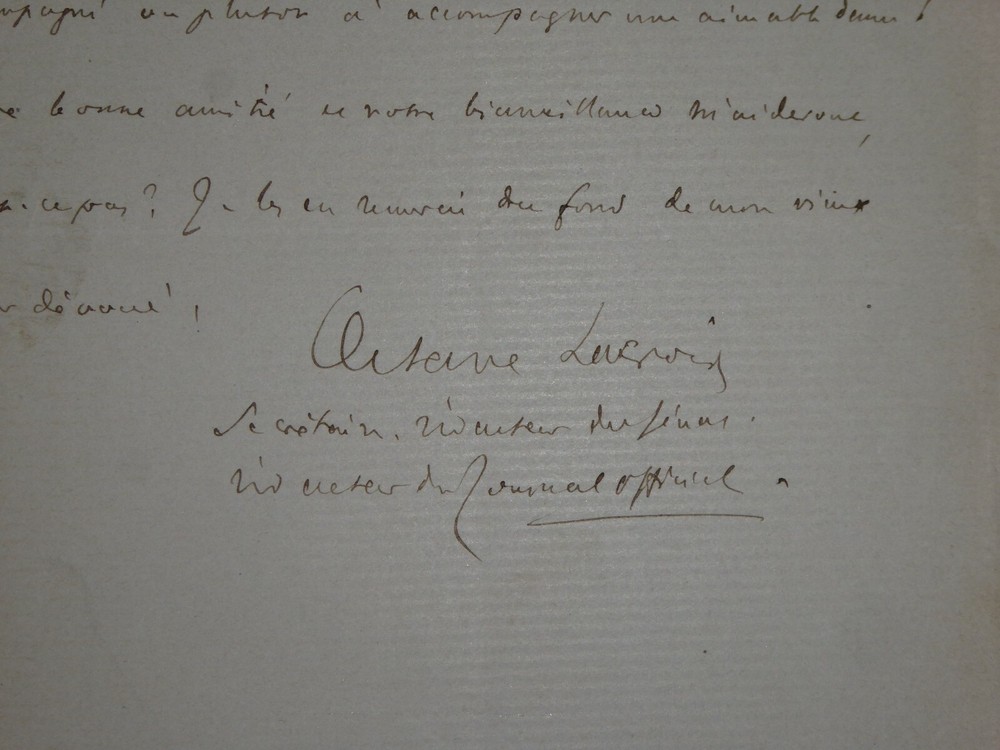 mpagné ou plutôt à accompagner une aimable dame !
bonne amitié et votre bienveillance m'aideront,
ce pas ? Je les en remercie du fond de mon vieux
dévoué !
Octave Lacroix
Secrétaire. rédacteur du Sénat.
rédacteur du Journal officiel.